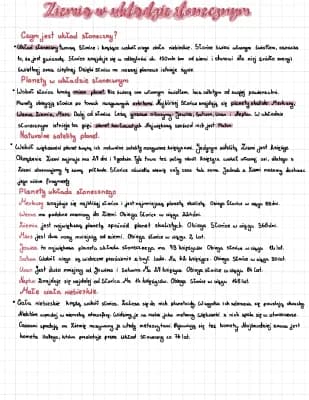 Ziemia w układzie słonecznym
Czym jest układ słoneczny?
• Układ słoneczny tworzą Słońce i krążące wokół niego ciała niebieskie. Słońce świeci własnym światłem, oznacza
to, że jest gwiazdą. Słońce znajduje się w odległości ok. 150 mln km od ziemi i stanowi dla niej źródło energii
świetlnej oraz cieplnej. Dzięki Słońcu na naszej planecie istnieje życie.
Planety w układzie słonecznym
• Wokół słońca krąży osiem planet. Nie świecą one własnym światłem, lecz odbijają od swojej powierzchni.
Planety obiegają słońce po torach nazywanych orbitami. Najbliżej Słońca znajdują się planety skaliste: Merkury,
Wenus, Ziemia, Mars. Dalej od słońca Leżą gazowe olbrzymy: Jowisz, Saturn, Uran i Neptun. W układzie
słonecznym istnieje też pięć planet karłowatych. Największą spośród nich jest Pluton.
Naturalne satelity planet.
• Wokół większości planet krążą ich naturalne satelity nazywane księżycami. Jedynym satelitą Ziemi jest Księżyc.
Okrążenie Ziemi zajmuje mu 27 dni i 8 godzin. Tyle trwa też pełny obrót Księżyca wokół własnej osi, dlatego z
Ziemi obserwujemy tę samą półkulę. Słońce oświetla zawsze całą jego tak samo. Jednak z Ziemi możemy dostrzec
jego różne fragmenty.
Planety układu słonecznego
Merkury znajduje się najbliżej słońca i jest najmniejszą planetą skalistą. Obiega Słońce w ciągu 88 dni.
Wenus ma podobne rozmiary do Ziemi. Obiega Słońce w ciągu 225 dni.
Ziemia jest największą planetą spośród planet skalistych. Obiega Słońce w ciągu 365 dni.
Mars jest dwa razy mniejszy od ziemi. Obiega słońce w ciągu 2 lat.
Jowisz to największa planeta układu słonecznego. ma księżyców. Obiega Słońce w ciągu 12 lat.
Saturn Wokół niego są widoczne pierścienie z brył lodu. Ma księżyce. Obiega Słońce w ciągu lat.
Uran Jest dużo mniejszy od Jowisza i Saturna. Ma 27 księżyców. Obiega słońce w ciągu 84 lat.
Neptun Znajduje się najdalej od Słońca. Ma 14 księżyców. Obiega Słońce w ciągu 165 lat.
Małe ciała niebieskie.
• Ciała niebieskie krążą wokół słońca. Zalicza się do nich planetoidy. W wyniku ich zderzenia się powstają okruchy.
Niektóre wpadają w ziemską atmosferę. Widzimy je na niebie jako meteory. Większość z nich spala się w atmosferze.
Czasami spadają na Ziemię nazywamy je wtedy meteorytami. Pojawiają się też komety. Najbardziej znaną jest
kometa Halleya, która przelatuje przez Układ Słoneczny co 76 lat.